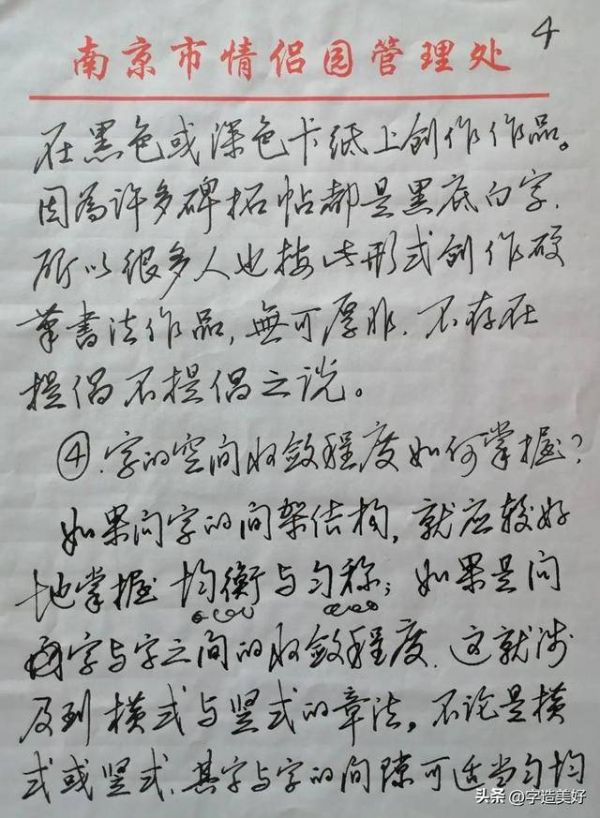 4
南京市情侣园管理处
在黑色或深色卡纸上创作作品。
因為许多碑拓帖都是黑底白字，
所以很多人也按此形式创作硬
筆書法作品，無可厚非，不存在
提倡不提倡之说。
④.字的空间收敛程度如何掌握？
如果问字的间架结构，就应较好
地掌握均衡与匀称；如果是问
字与字之间的收敛程度，这就涉
及到横式与竖式的章法，不论是横
式或竖式，其字与字的间隙可适当匀均
头条 @字造美好